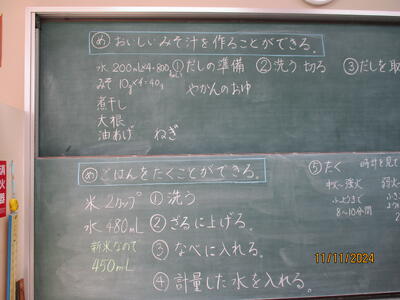 め おいしいみそ汁を作ることができる。
水 200mL×4=800 ①だしの準備 ②洗う 切る ③だしを取
みそ 10g×4=40g やかんのおゆ
煮干し
大根
油あげ ねぎ
め ごはんをたくことができる。
米 2カップ ①洗う
水 480mL ②ざるに上げる。
新米なので ③なべに入れる。
450mL
④計量した水を入れる。
⑤たく 時計を見て
中火〜強火 弱火
ふっとうまで
8〜10分間
消火器
11/11/2024